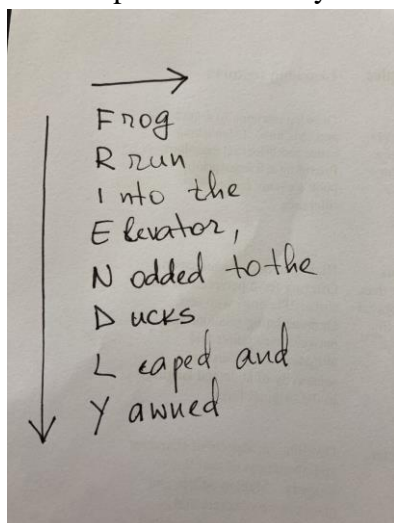 Frog
R run
I nto the
E levator,
N odded to the
D ucks
L eaped and
Y awned